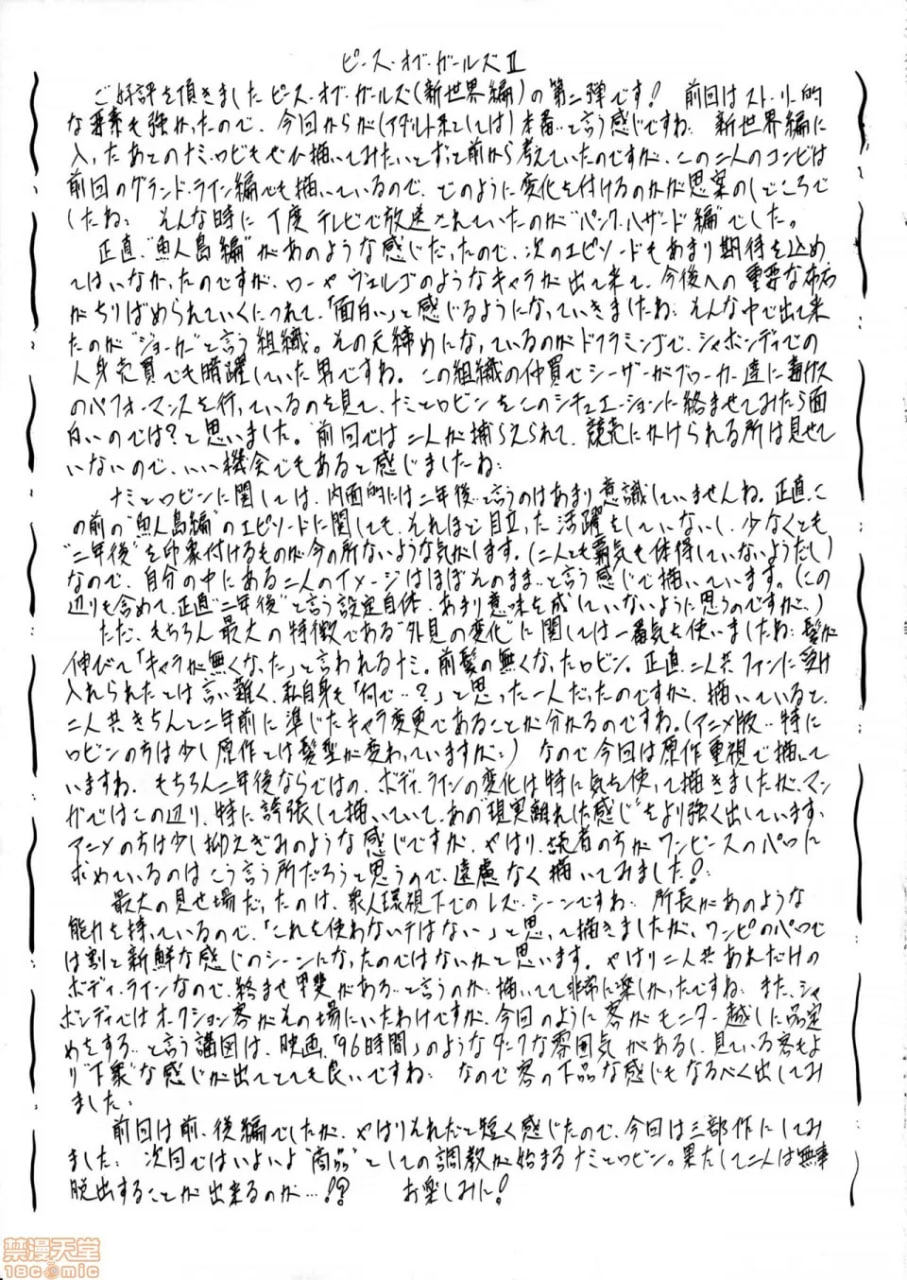 ピース・オブ・ガールズⅡ
ご好評を頂きましたピース・オブ・ガールズ(新世界編)の第二弾です! 前回はストーリー的
な要素も強かったので、今回からが(アダルト系としては)本番…と言う感じですね。 新世界編に
入ったあとのナミ・ロビもぜひ描いてみたいとずっと前から考えていたのですが、この二人のコンビは
前回のグランド・ライン編でも描いているので、どのように変化を付けるのかが思案のしどころで
したね。 そんな時に丁度テレビで放送されていたのが“パンク・ハザード編”でした。
正直“魚人島編”があのような感じだったので、次のエピソードもあまり期待を込め
てはいなかったのですが、ローやヴェルゴのようなキャラが出て来て、今後への重要な布石
がちりばめられていくにつれて、「面白い」と感じるようになっていきましたね。そんな中で出て来
たのが“ジョーカー”と言う組織。その元締めになっているのがドフラミンゴで、シャボンディでの
人身売買でも暗躍していた男ですね。この組織の仲買でシーザーがブローカー達に毒ガス
のパフォーマンスを行っているのを見て、ナミとロビンをこのシチュエーションに絡ませてみたら面
白いのでは?と思いました。前回では二人が捕らえられて、競売にかけられる所は見せて
いないので、いい機会でもあると感じましたね。
ナミとロビンに関しては、内面的には二年後…と言うのはあまり意識していませんね。正直、こ
の前の“魚人島編”のエピソードに関しても、それほど目立った活躍をしていないし、少なくとも
“二年後”を印象付けるものが今の所ないような気がします。(二人とも覇気も体得していないようだし)
なので、自分の中にある二人のイメージはほぼそのまま…と言う感じで描いています。(この
辺りも含めて、正直“二年後”と言う設定自体、あまり意味を成していないように思うのですが…)
ただ、もちろん最大の特徴である“外見の変化”に関しては一番気を使いましたね。髪が
伸びて「キャラが無くなった」と言われるナミ。前髪の無くなったロビン。正直二人共ファンに受け
入れられたとは言い難く、私自身も「何で…?」と思った一人だったのですが、描いていると、
二人共きちんと二年前に準じたキャラ変更であることが分かるのですね。(アニメ版…特に
ロビンの方は少し原作とは髪型が変わっていますが…) なので今回は原作重視で描いて
いますね。もちろん二年後ならではの、ボディ・ラインの変化は特に気を使って描きましたが、マン
ガではこの辺り、特に誇張して描いていて、あの“現実離れした感じ”をより強く出しています。
アニメの方は少し抑えぎみのような感じですが、やはり、読者の方がワンピースのパロに
求めているのはこう言う所だろうと思うので、遠慮なく描いてみました!
最大の見せ場だったのは、衆人環視下でのレズ・シーンですね。 所長があのような
能力を持っているので、「これを使わないテはない」と思って描きましたが、ワンピのパロで
は割と新鮮な感じのシーンになったのではないかと思います。やはり二人共あれだけの
ボディ・ラインなので、絡ませ甲斐がある…と言うのか、描いてて非常に楽しかったですね。また、シャ
ボンディではオークション客がその場にいたわけですが、今回のように客がモニター越しに品定
めをする…と言う構図は、映画、「96時間」のようなダークな雰囲気があるし、見ている客もよ
り“下衆”な感じが出てとても良いですね。 なので客の下品な感じもなるべく出してみ
ました。
前回は前、後編でしたが、やはりそれだと短く感じたので、今回は三部作にしてみ
ました。 次回ではいよいよ“商品”としての調教が始まるナミとロビン。果たして二人は無事
脱出することが出来るのか…!? お楽しみに!
禁漫天堂
18comic